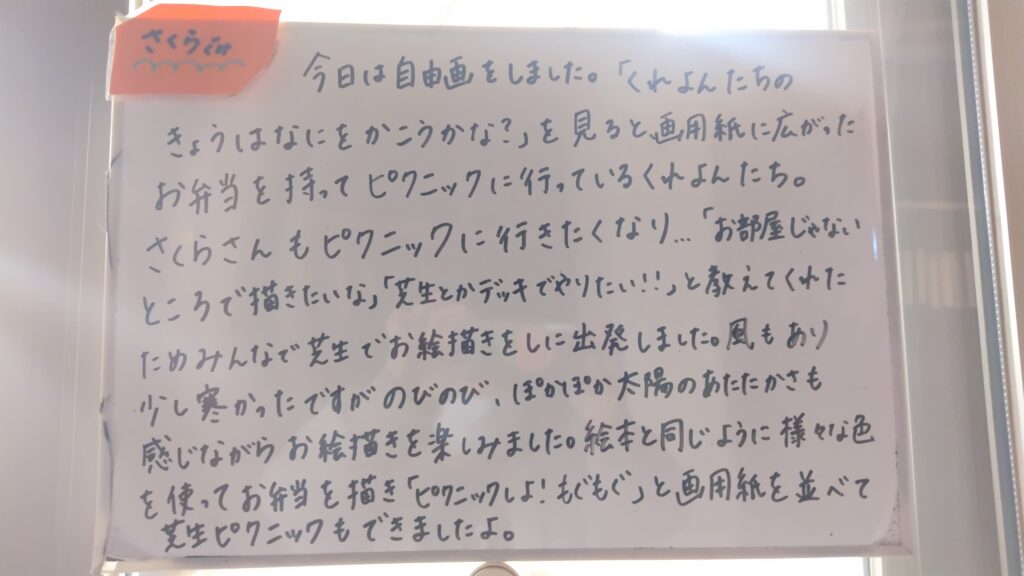 さくらぐみ
今日は自由画をしました。「くれよんたちの
きょうはなにをかこうかな?」を見ると、画用紙に広がった
お弁当を持ってピクニックに行っているくれよんたち。
さくらさんもピクニックに行きたくなり…「お部屋じゃない
ところで描きたいな」「芝生とかデッキでやりたい!!」と教えてくれた
ためみんなで芝生でお絵描きをしに出発しました。風もあり
少し寒かったですがのびのび、ぽかぽか太陽のあたたかさも
感じながらお絵描きを楽しみました。絵本と同じように様々な色
を使ってお弁当を描き「ピクニックしよ!もぐもぐ」と画用紙を並べて
芝生ピクニックもできましたよ。